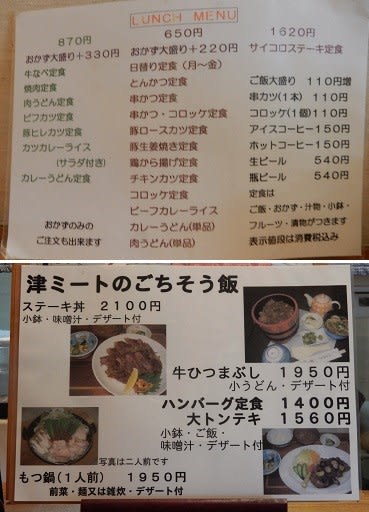 LUNCH MENU
870円
おかず大盛り+330円
牛なべ定食
焼肉定食
肉うどん定食
ビフカツ定食
豚ヒレカツ定食
カツカレーライス
(サラダ付き)
カレーうどん定食
おかずのみの
ご注文も出来ます
650円
おかず大盛り+220円
日替り定食(月~金)
とんかつ定食
串かつ定食
串かつ・コロッケ定食
豚ロースカツ定食
豚生姜焼き定食
鶏から揚げ定食
チキンカツ定食
コロッケ定食
ビーフカレーライス
カレーうどん(単品)
肉うどん(単品)
1620円
サイコロステーキ定食
ご飯大盛り 110円増
串カツ(1本) 110円
コロッケ(1個)110円
アイスコーヒー150円
ホットコーヒー150円
生ビール 540円
瓶ビール 540円
定食は
ご飯・おかず・汁物・小鉢・
フルーツ・漬物がつきます
表示値段は消費税込み
津ミートのごちそう飯
ステーキ丼 2100円
小鉢・味噌汁・デザート付
牛ひつまぶし 1950円
小うどん・デザート付
ハンバーグ定食 1400円
大トンテキ 1560円
小鉢・ご飯・
味噌汁・デザート付
写真は二人前です
もつ鍋(1人前) 1950円
前菜・麺又は雑炊・デザート付